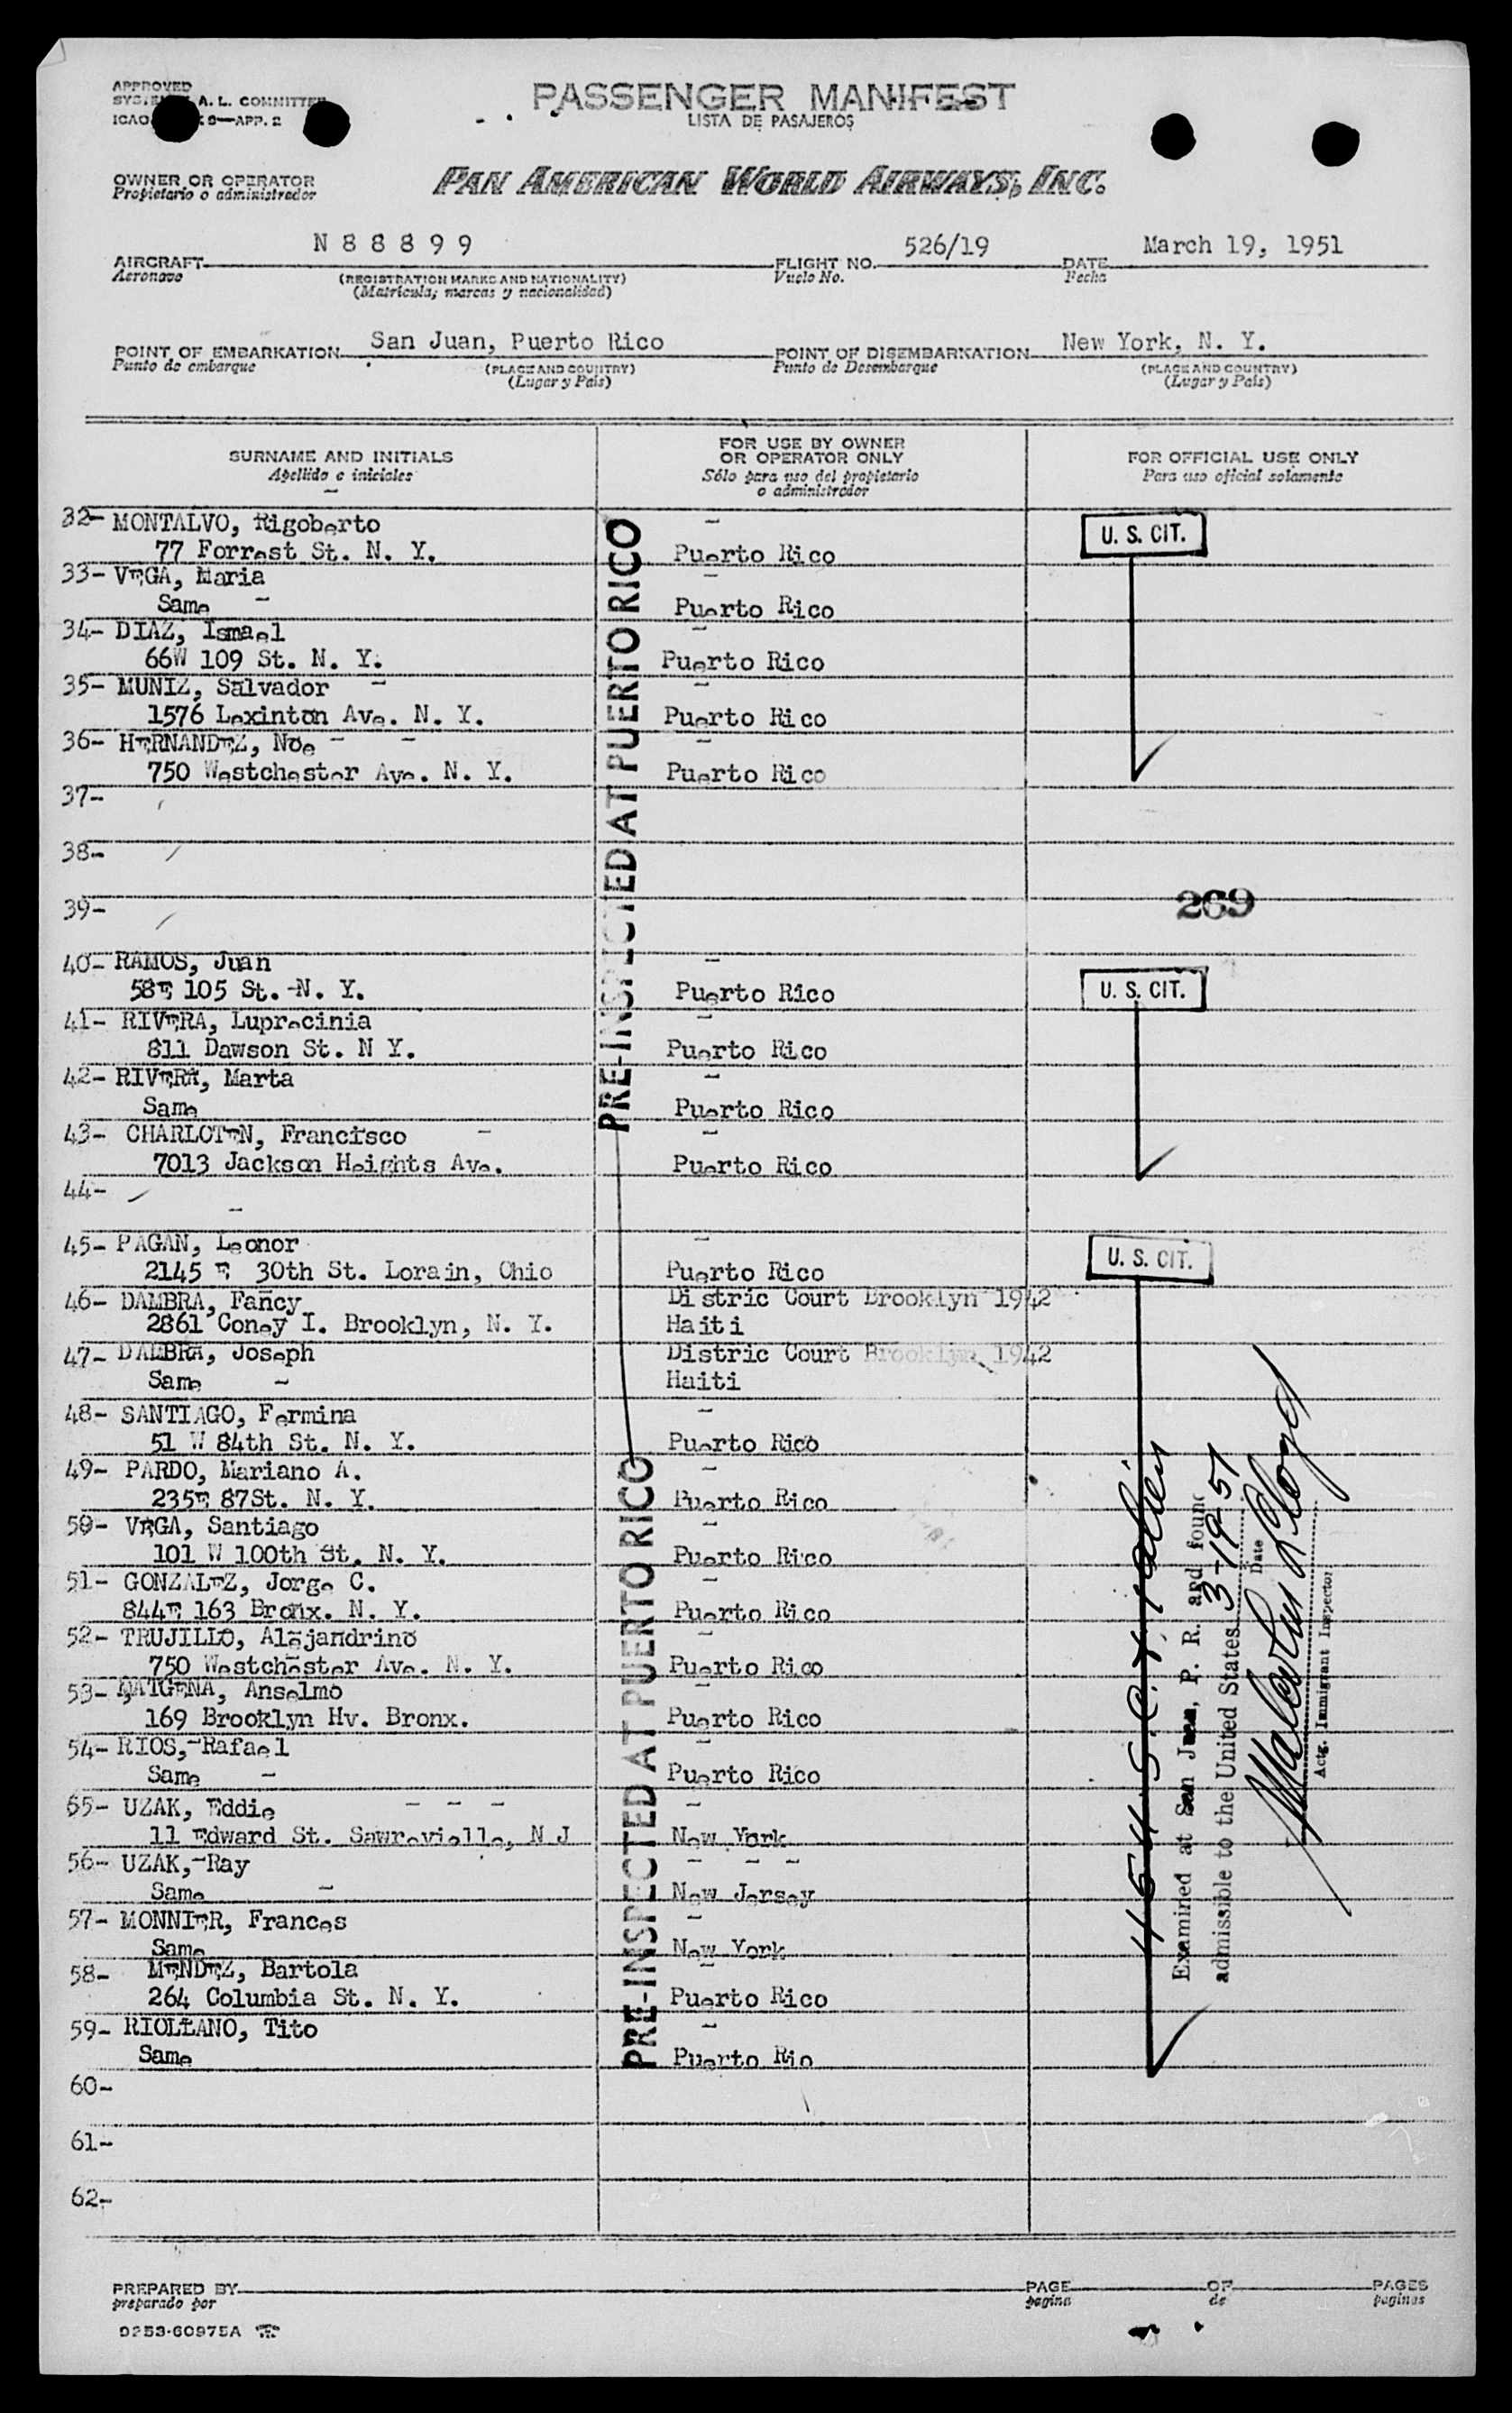 APPROVED
A. L. COMMITTEE
ICAO 9—APP. 2
PASSENGER MANIFEST
LISTA DE PASAJEROS
OWNER OR OPERATOR
Propietario o administrador
PAN AMERICAN WORLD AIRWAYS, INC.
AIRCRAFT N 8 8 8 9 9 FLIGHT NO. 526/19 DATE March 19, 1951
Aeronave (REGISTRATION MARKS AND NATIONALITY) Vuelo No. Fecha
(Matricula; marcas y nacionalidad)
POINT OF EMBARKATION San Juan, Puerto Rico POINT OF DISEMBARKATION New York, N. Y.
Punto de embarque (PLACE AND COUNTRY) Punto de Desembarque (PLACE AND COUNTRY)
(Lugar y País) (Lugar y País)
SURNAME AND INITIALS FOR USE BY OWNER OR OPERATOR ONLY FOR OFFICIAL USE ONLY
Apellido e iniciales Sólo para uso del propietario o administrador Para uso oficial solamente
32- MONTALVO, Rigoberto U. S. CIT.
77 Forrest St. N. Y. Puerto Rico
33- VEGA, Maria
Same Puerto Rico
34- DIAZ, Ismael
66W 109 St. N. Y. Puerto Rico
35- MUNIZ, Salvador
1576 Lexinton Ave. N. Y. Puerto Rico
36- HERNANDEZ, Noe
750 Westchester Ave. N. Y. Puerto Rico
37-
38-
39- 269
40- RAMOS, Juan
58E 105 St. N. Y. Puerto Rico U. S. CIT.
41- RIVERA, Luprecinia
811 Dawson St. N Y. Puerto Rico
42- RIVERA, Marta
Same Puerto Rico
43- CHARLOTEN, Francisco
7013 Jackson Heights Ave. Puerto Rico
44-
45- PAGAN, Leonor U. S. CIT.
2145 E 30th St. Lorain, Ohio Puerto Rico
46- DAMBRA, Fancy Distric Court Brooklyn 1942
2861 Coney I. Brooklyn, N. Y. Haiti
47- DAMBRA, Joseph Distric Court Brooklyn 1942
Same Haiti
48- SANTIAGO, Fermina
51 W 84th St. N. Y. Puerto Rico
49- PARDO, Mariano A.
235E 87St. N. Y. Puerto Rico
50- VEGA, Santiago
101 W 100th St. N. Y. Puerto Rico
51- GONZALEZ, Jorge C.
844E 163 Bronx. N. Y. Puerto Rico
52- TRUJILLO, Alejandrino
750 Westchester Ave. N. Y. Puerto Rico
53- MATGENA, Anselmo
169 Brooklyn Hv. Bronx. Puerto Rico
54- RIOS, Rafael
Same Puerto Rico
55- UZAK, Eddie
11 Edward St. Sawrevielle, N J New York
56- UZAK, Ray
Same New Jersey
57- MONNIER, Frances
Same New York
58- MENDEZ, Bartola
264 Columbia St. N. Y. Puerto Rico
59- RIOLLANO, Tito
Same Puerto Rio
60-
61-
62-
PRE-INSPECTED AT PUERTO RICO
PRE-INSPECTED AT PUERTO RICO
Examined at San Juan, P. R. and found
admissible to the United States 3-19-51
Date
Actg. Immigrant Inspector
PREPARED BY PAGE OF PAGES
preparado por pagina de paginas
0253-60975A